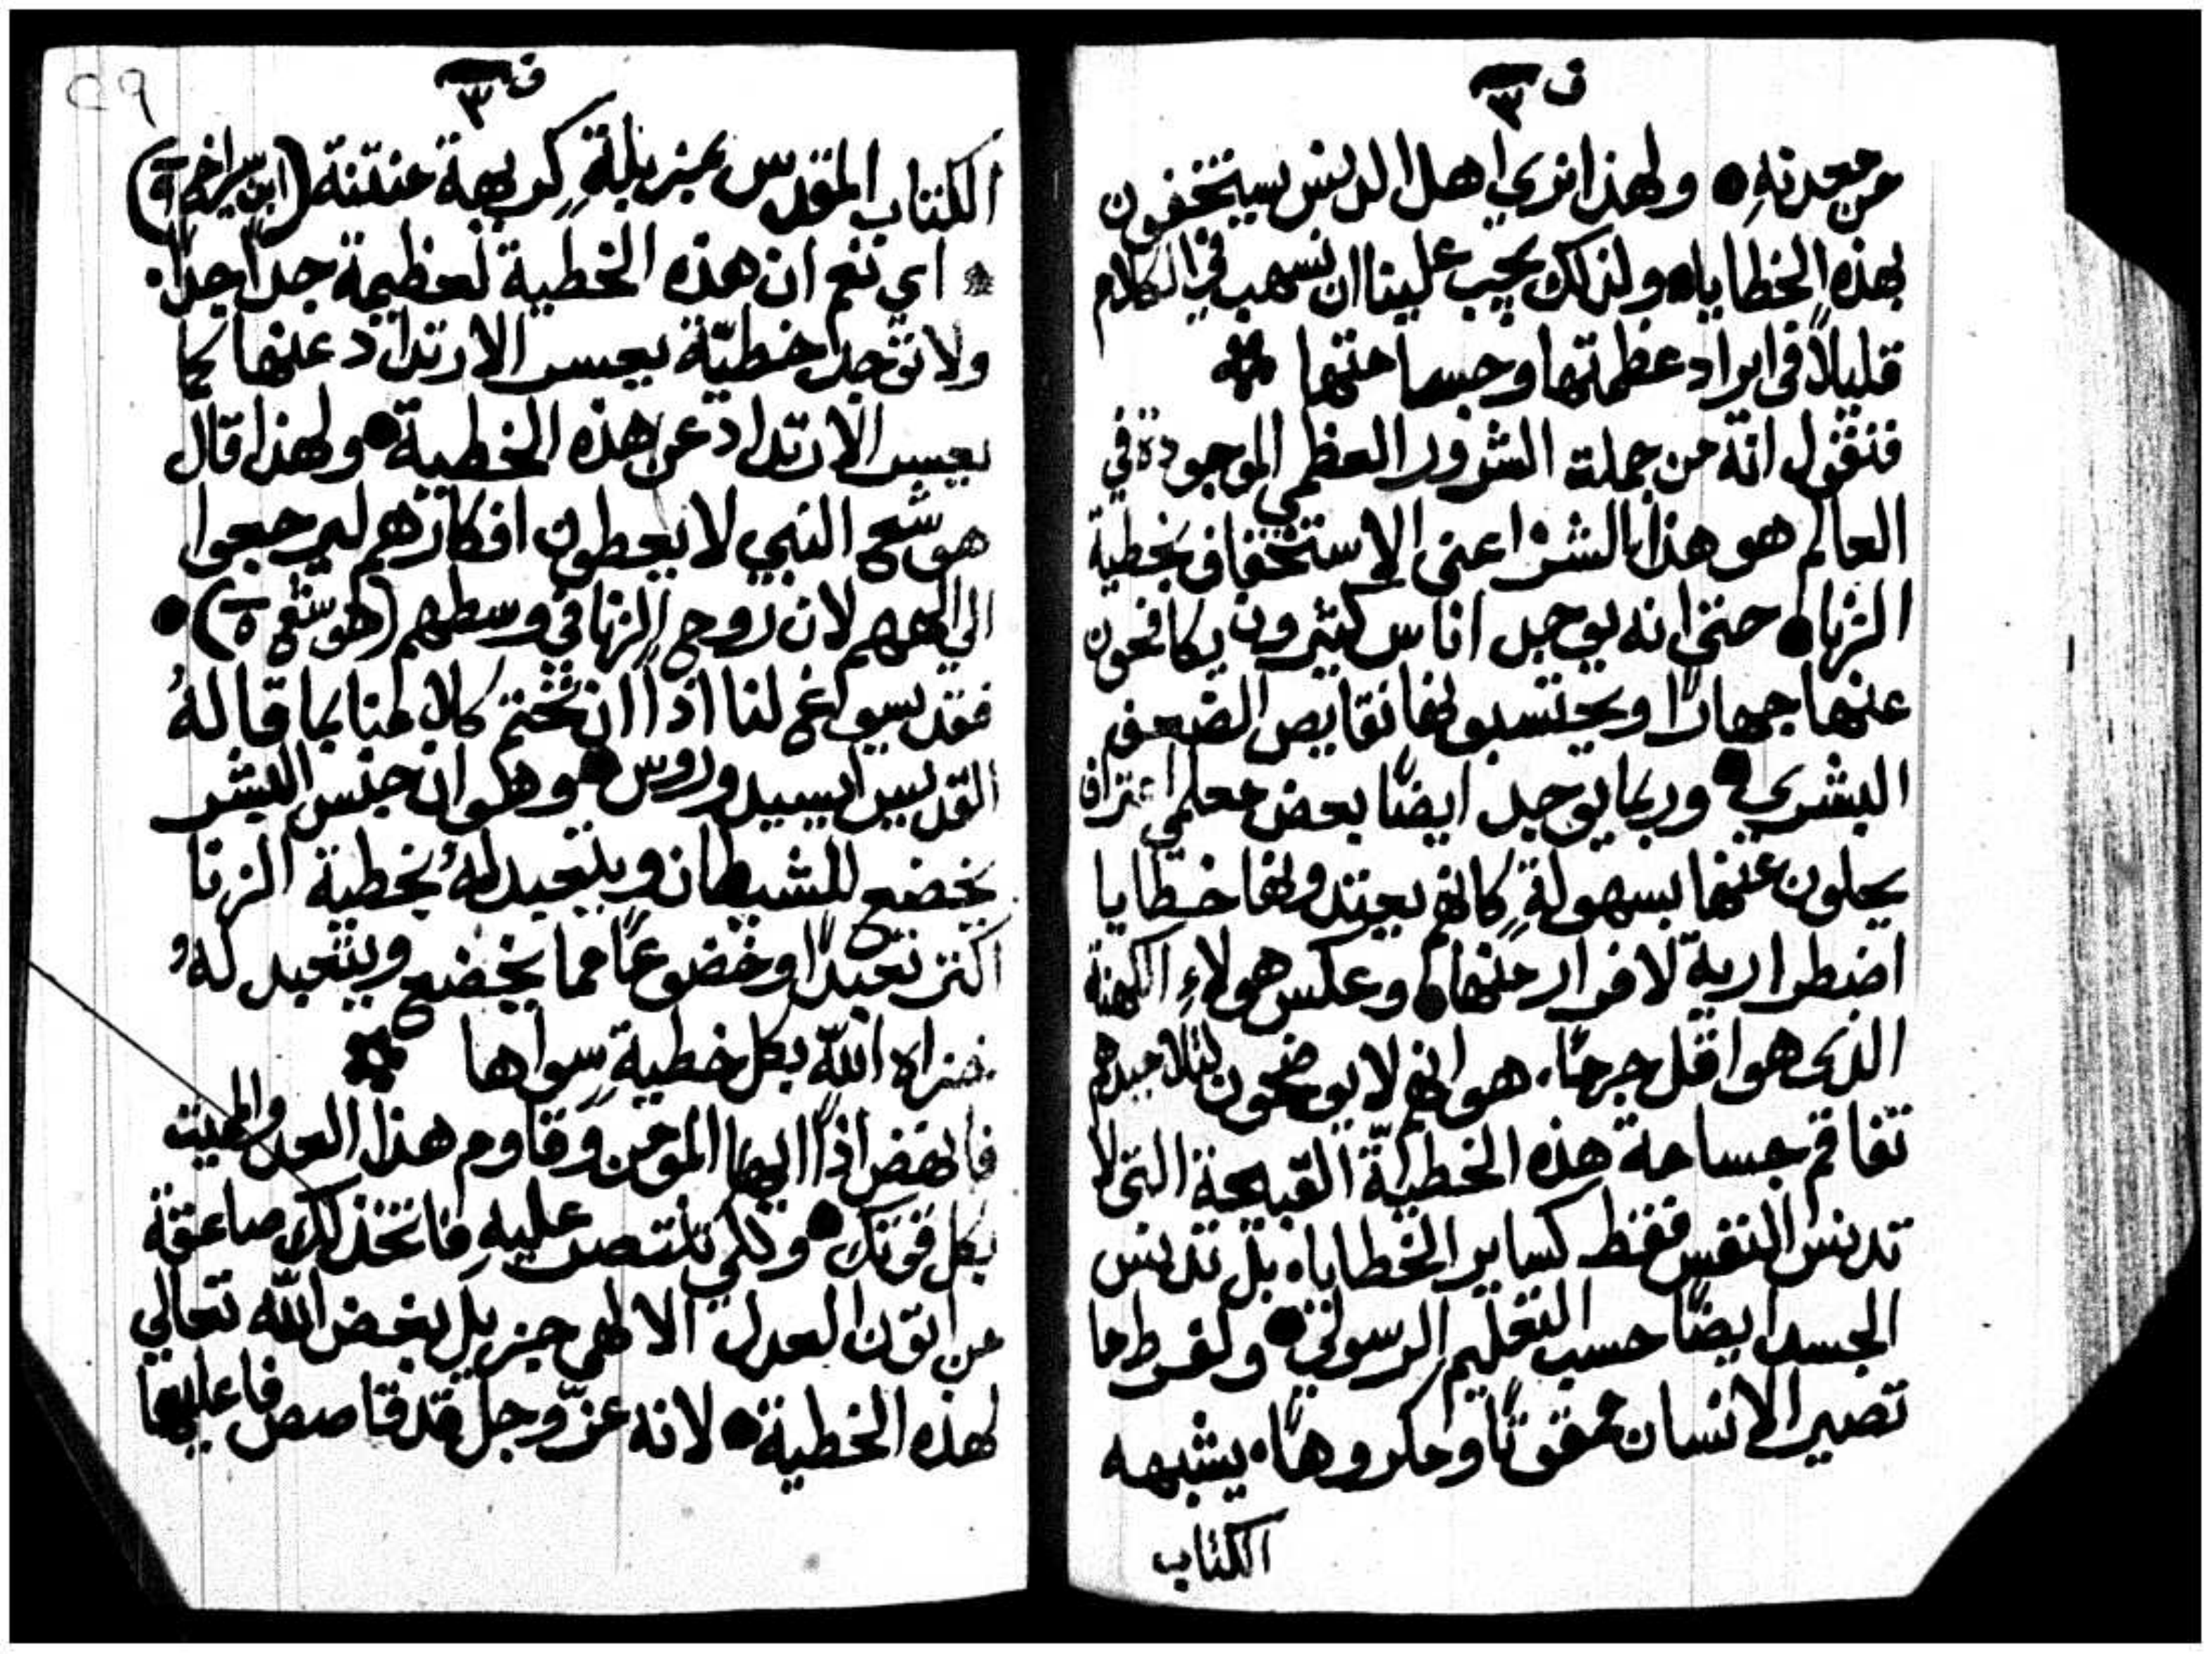 ف ٣
من معدته ● ولهذا نري اهل الدنس يستخفون
بهذه الخطايا ● ولذلك يجب علينا ان نسهب في الكلام
قليلاً في ايراد عظمتها وجسامتها
فنقول انه من جملة الشرور العظمي الموجودة في
العالم هو هذا الشر اعني الاستخفاف بخطية
الزنا ● حتي انه يوجد اناس كثيرون يكافحون
عنها جهارًا ويحتسبونها نقايص الضعف
البشري ● وربما يوجد ايضًا بعض معلمي اعتراف
يحلون عنها بسهولةٍ كانهم يعتدونها خطايا
اضطرارية لا فرار منها ● وعكس هولاءِ الكهنة
الذي هو اقل جرمًا، هو انهم لا يوضحون لتلاميذهم
تفاقم جسامة هذه الخطيّة القبيحة التي لا
تدنس النفس فقط كساير الخطايا، بل تدنس
الجسد ايضًا حسب التعليم الرسولي ● ولفرط ما
تصير الانسان ممقوتًا ومكروهًا، يشبهه
الكتاب
٢٩
ف ٣
الكتاب المقدس بمزبلةٍ كريهة منتنة (ابن سيراخ ٩)
اي نعم ان هذه الخطية لعظيمة جداً جداً،
ولا توجد خطيّة يعسر الارتداد عنها كما
يعسر الارتداد عن هذه الخطية ● ولهذا قال
هوشع النبي لا يعطون افكارهم ليرجعوا
الي الههم لان روح الزنا في وسطهم (هوشع ٥) ●
فقد يسوغ لنا اذًا ان نختم كلامنا بما قالهُ
القديس ايسيدوروس ● وهو ان جنس البشر
يخضع للشيطان ويتعبد لهُ بخطية الزنا
اكثر تعبدًا وخضوعًا مما يخضع ويتعبد لهُ
اخزاه الله بكل خطيةٍ سواها
فانهض اذًا ايها المومن وقاوم هذا العدو المميت
بكل قوتك ● ولكي تنتصر عليهِ فاتخذ لك صاعقة
من اتون العدل الالهي جزيل بغض الله تعالي
لهذه الخطية ● لانه عزّ وجلّ قد قاصص فاعليها